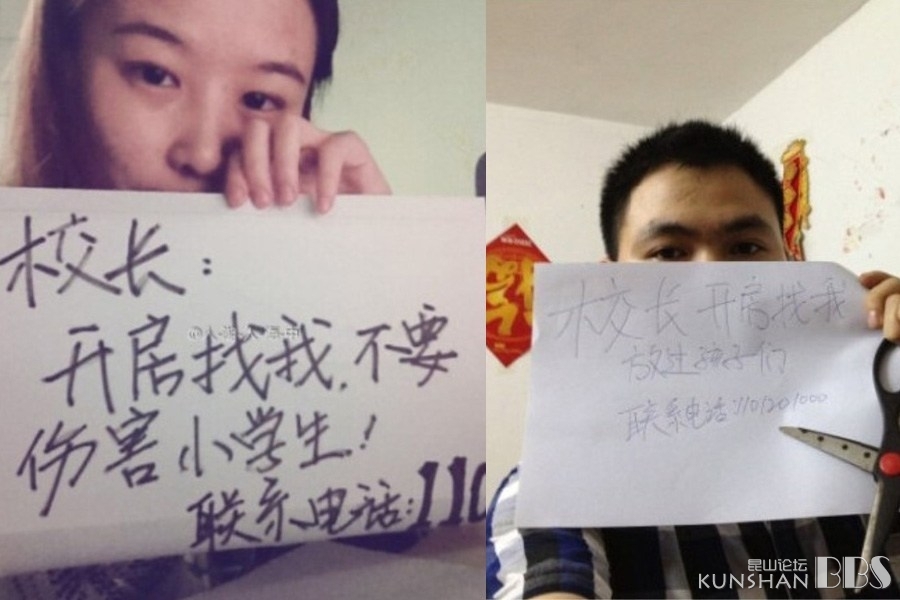 校长：
开房找我，不要
伤害小学生！
联系电话：110
校长 开房找我
放过孩子们
联系电话：1101201000
昆山论坛
KUNSHAN BBS